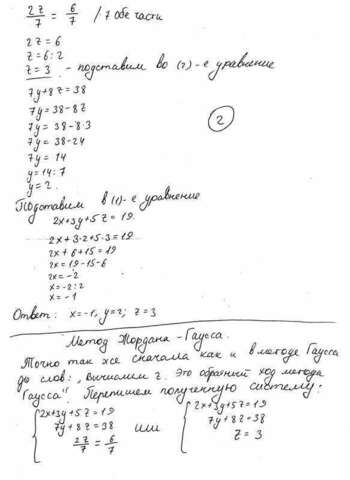 2z/7 = 6/7 /7 обе части
2z = 6
z = 6:2
z = 3 - подставим во (2)-е уравнение
7y+8z=38
7y=38-8z
7y = 38-8·3
7y = 38-24
7y = 14
y=14:7
y=2.
2
Подставим в (1)-е уравнение
2x+3y+5z=19.
2x+3·2+5·3=19
2x+6+15=19
2x=19-15-6
2x=-2
x=-2:2
x=-1
Ответ: x=-1, y=2; z=3
Метод Жордана-Гаусса.
Точно так же сначала как и в методе Гаусса
до слов: „Вычислим z. Это обратный ход метода
Гаусса". Перепишем полученную систему:
2x+3y+5z=19
7y+8z=38
2z/7 = 6/7
или
2x+3y+5z=19
7y+8z=38
z=3